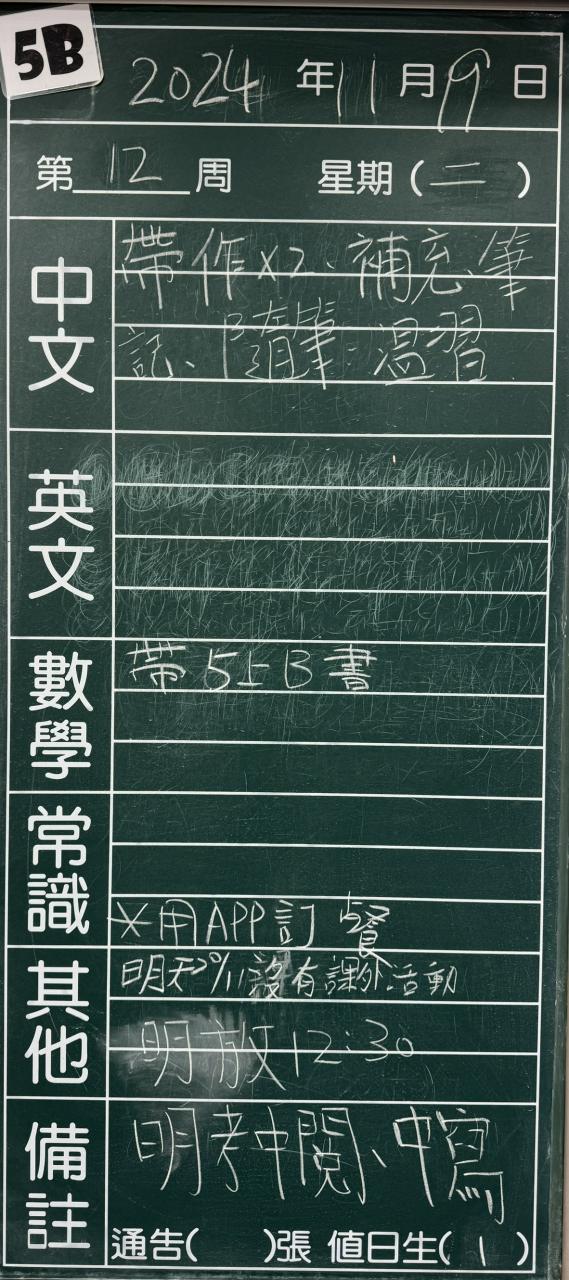 5B
2024年11月19日
第12周 星期(二)
中文
帶作x2、補充、筆
記、隨筆、温習
英文
數學
帶5上B書
常識
*用APP訂餐
其他
明天20/11沒有課外活動
明放12:30
備註
明考中閱、中寫
通告( )張 值日生(1)